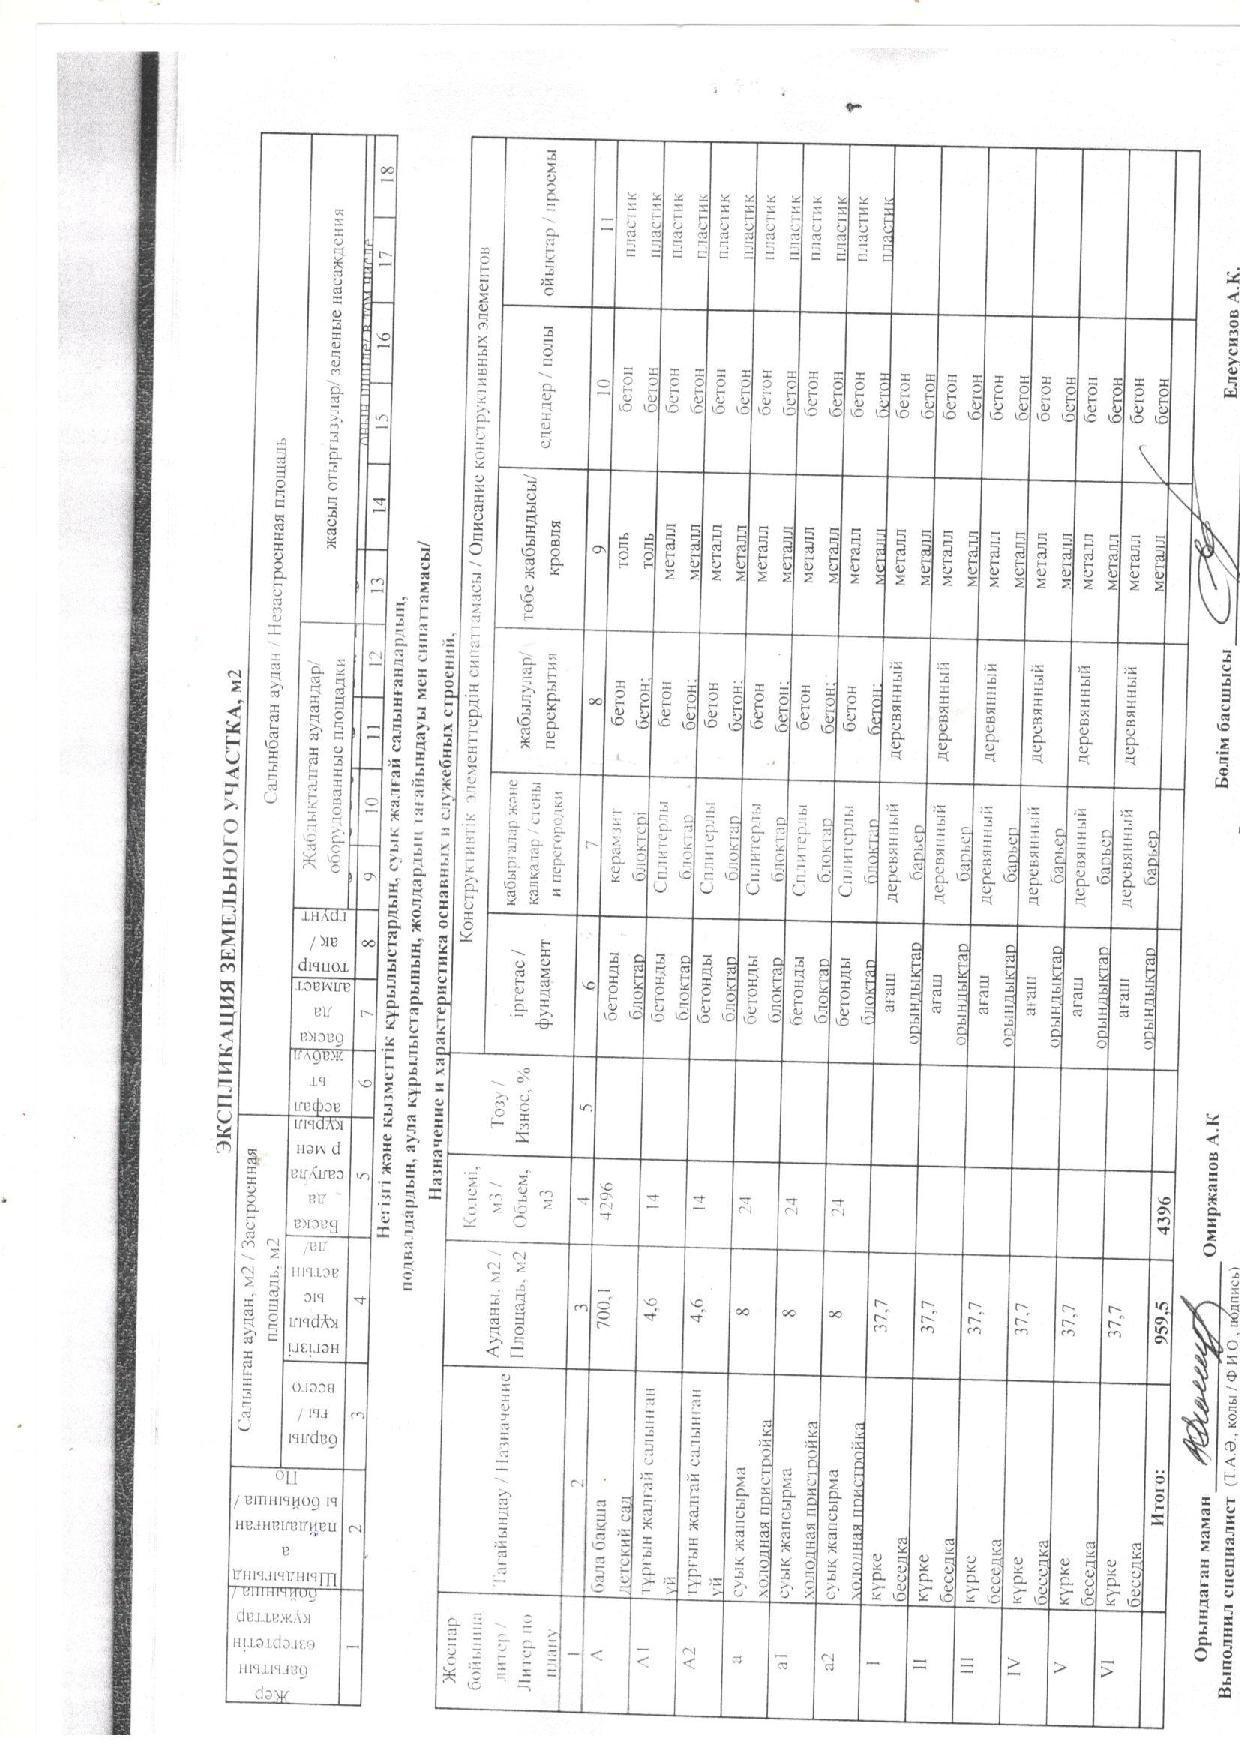 ЭКСПЛИКАЦИЯ ЗЕМЕЛЬНОГО УЧАСТКА, м2
Салынған аудан, м2 / Застроенная площадь, м2
Салынбаған аудан / Незастроенная площадь
Жабдықталған аудандар/ оборудованные площадки
жасыл отырғызулар/ зеленые насаждения
1 2 3 4 5 6 7 8 9 10 11 12 13 14 15 16 17 18
Негізгі және қызметтік құрылыстардың, суық жалғай салынғандардың,
подвалдардың, аула құрылыстарының, жолдардың тағайындауы мен сипаттамасы/
Назначение и характеристика основных и служебных строений,
Жоспар бойынша литер / Литер по плану
Тағайындау / Назначение
Ауданы, м2 / Площадь, м2
Көлемі, м3 / Объем, м3
Тозу / Износ, %
Конструктивтік элементтердің сипаттамасы / Описание конструктивных элементов
іргетас / фундамент
қабырғалар және қалқалар / стены и перегородки
жабылулар/ перекрытия
төбе жабындысы/ кровля
едендер / полы
ойықтар / проемы
1 2 3 4 5 6 7 8 9 10 11
А бала бақша детский сад 700,1 4296 бетонды блоктар керамзит блоктері бетон бетон; толь толь бетон бетон пластик пластик
А1 тұрғын жалғай салынған үй 4,6 14 бетонды блоктар Сплитерлы блоктар бетон бетон; металл металл бетон бетон пластик пластик
А2 тұрғын жалғай салынған үй 4,6 14 бетонды блоктар Сплитерлы блоктар бетон бетон; металл металл бетон бетон пластик пластик
а суық жапсырма холодная пристройка 8 24 бетонды блоктар Сплитерлы блоктар бетон бетон; металл металл бетон бетон пластик пластик
а1 суық жапсырма холодная пристройка 8 24 бетонды блоктар Сплитерлы блоктар бетон бетон; металл металл бетон бетон пластик пластик
а2 суық жапсырма холодная пристройка 8 24 бетонды блоктар Сплитерлы блоктар бетон бетон; металл металл бетон бетон пластик пластик
I күрке беседка 37,7 ағаш орындықтар деревянный барьер деревянный металл металл бетон бетон
II күрке беседка 37,7 ағаш орындықтар деревянный барьер деревянный металл металл бетон бетон
III күрке беседка 37,7 ағаш орындықтар деревянный барьер деревянный металл металл бетон бетон
IV күрке беседка 37,7 ағаш орындықтар деревянный барьер деревянный металл металл бетон бетон
V күрке беседка 37,7 ағаш орындықтар деревянный барьер деревянный металл металл бетон бетон
VI күрке беседка 37,7 ағаш орындықтар деревянный барьер деревянный металл металл бетон бетон
Итого: 959,5 4396
Орындаған маман Омиржанов А.К Бөлім басшысы Елеусизов А.К.
Выполнил специалист (Т.А.Ә., қолы / Ф И О , подпись)